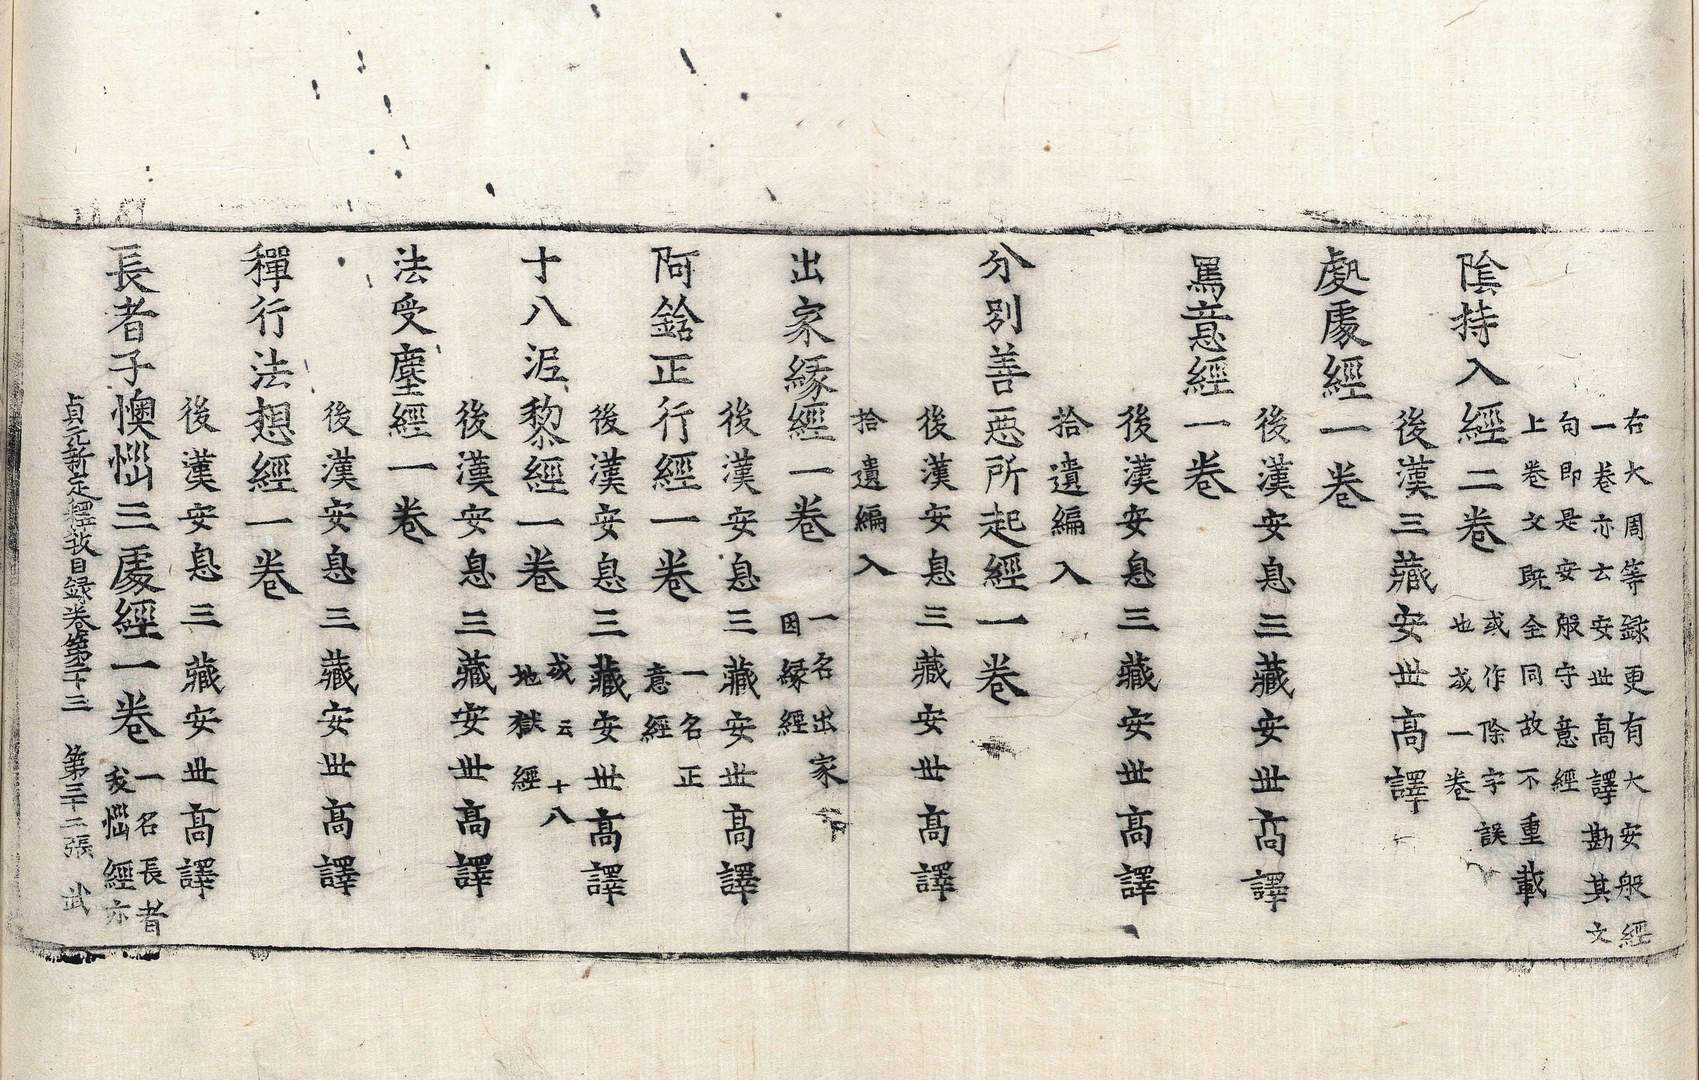 右大周等録更有大安般經
一卷亦云安世高譯勘其文
句即是安般守意經
上卷文既全同故不重載
陰持入經二卷
或作除字誤
也或一卷
後漢三藏安世高譯
處處經一卷
後漢安息三藏安世高譯
罵意經一卷
後漢安息三藏安世高譯
拾遺編入
分別善惡所起經一卷
後漢安息三藏安世高譯
拾遺編入
出家緣經一卷
一名出家
因縁經
後漢安息三藏安世高譯
阿鋡正行經一卷
一名正
意經
後漢安息三藏安世高譯
十八泥黎經一卷
或云十八
地獄經
後漢安息三藏安世高譯
法受塵經一卷
後漢安息三藏安世高譯
禪行法想經一卷
後漢安息三藏安世高譯
長者子懊惱三處經一卷
一名長者
夭惱經亦
貞元新定釋教目録卷第二十三 第三十二張 武